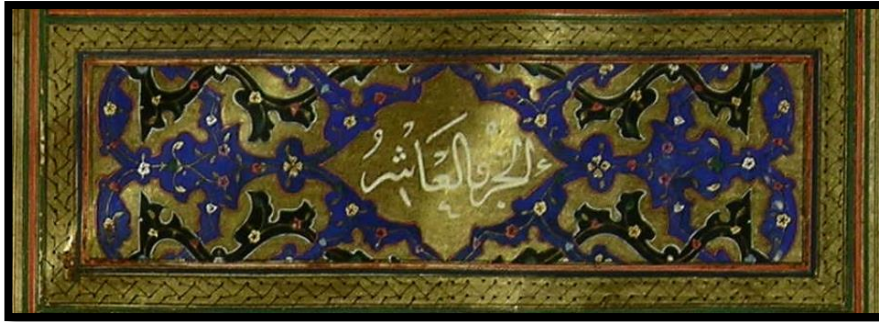 الجزء العاشر